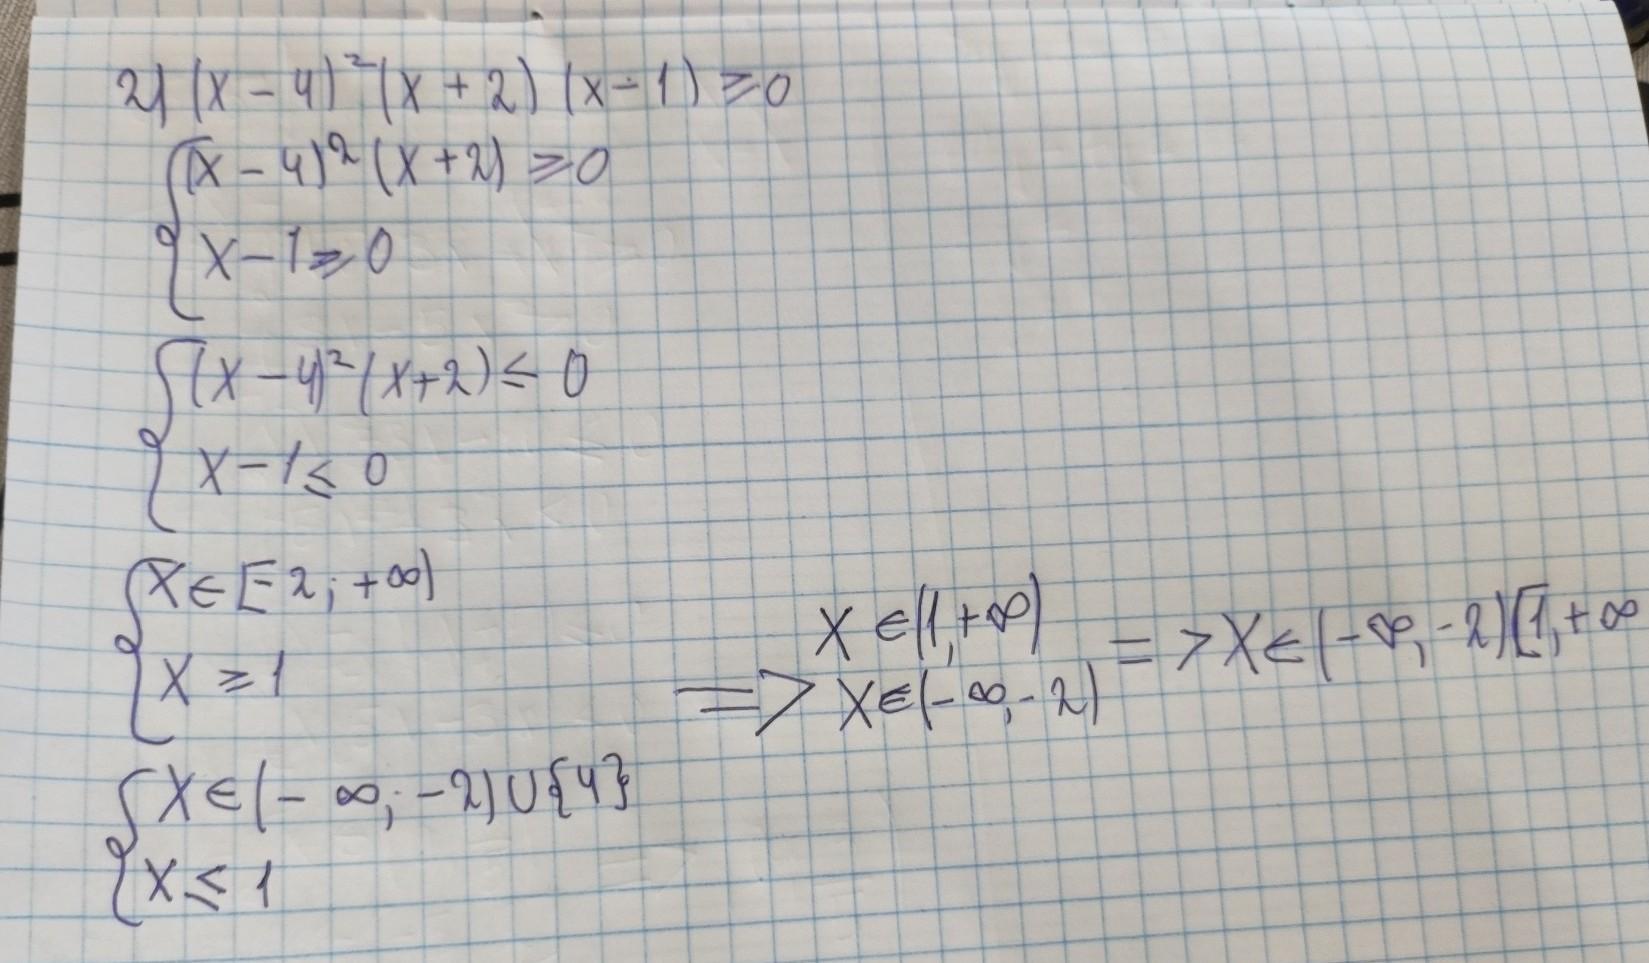 2) (x - 4)²(x + 2) (x - 1) ≥ 0
(x - 4)² (x + 2) ≥ 0
x - 1 ≥ 0
(x - 4)² (x + 2) ≤ 0
x - 1 ≤ 0
x ∈ [-2; +∞)
x ≥ 1
x ∈ (-∞; -2) ∪ {4}
x ≤ 1
=> x ∈ (1, +∞)
x ∈ (-∞, -2)
=> x ∈ (-∞, -2) [1, +∞